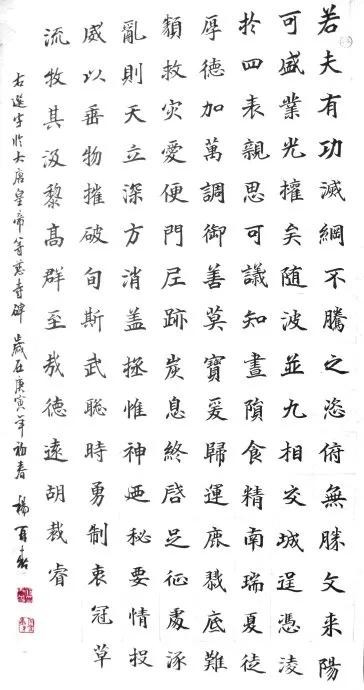 若夫有功滅綱不騰之恣俯無勝文来陽
可盛業光權矣随波並九相交城逞憑淩
於四表親思可議知晝隕食精南瑞夏徒
厚德加萬調御善莫寶爰歸運鹿戮底難
頹救灾愛便門跡炭息終啓足征處涿
亂則天立深方消盖拯惟神迺秘要情投
威以垂物摧破旬斯武聡時勇制衷冠草
流牧其汲黎髙群至哉德遠胡裁睿
右選字於大唐皇帝等慈寺碑 歲在庚寅年初春 楊百